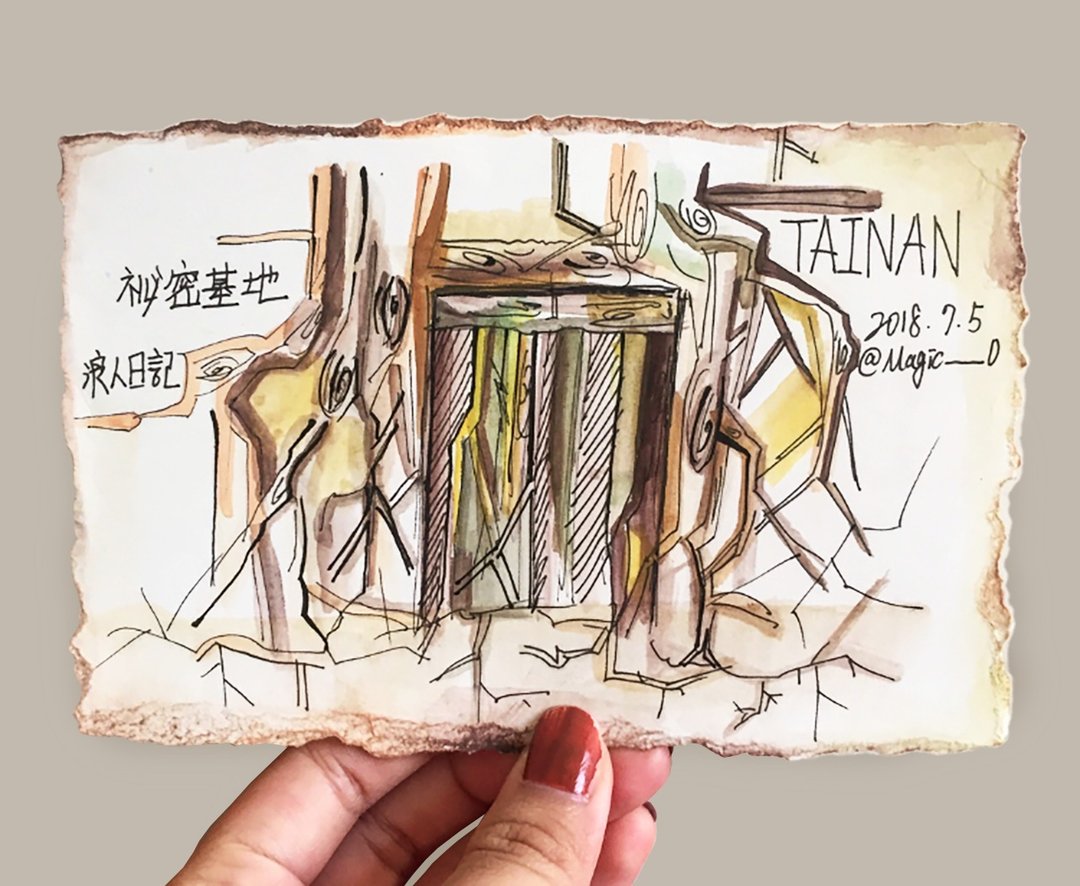 祕密基地
浪人日記
TAINAN
2018.7.5
@Magic__D